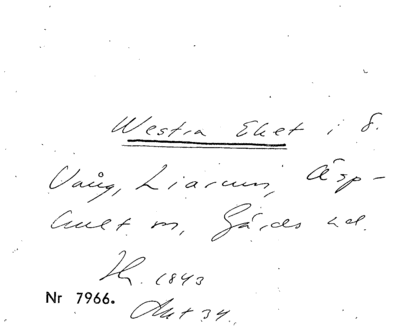 Westra Eket i S.
Vång, Liarum, Äsp-
hult sn, Gärds hd.
Hr. 1843
Nr 7966. Akt 34.